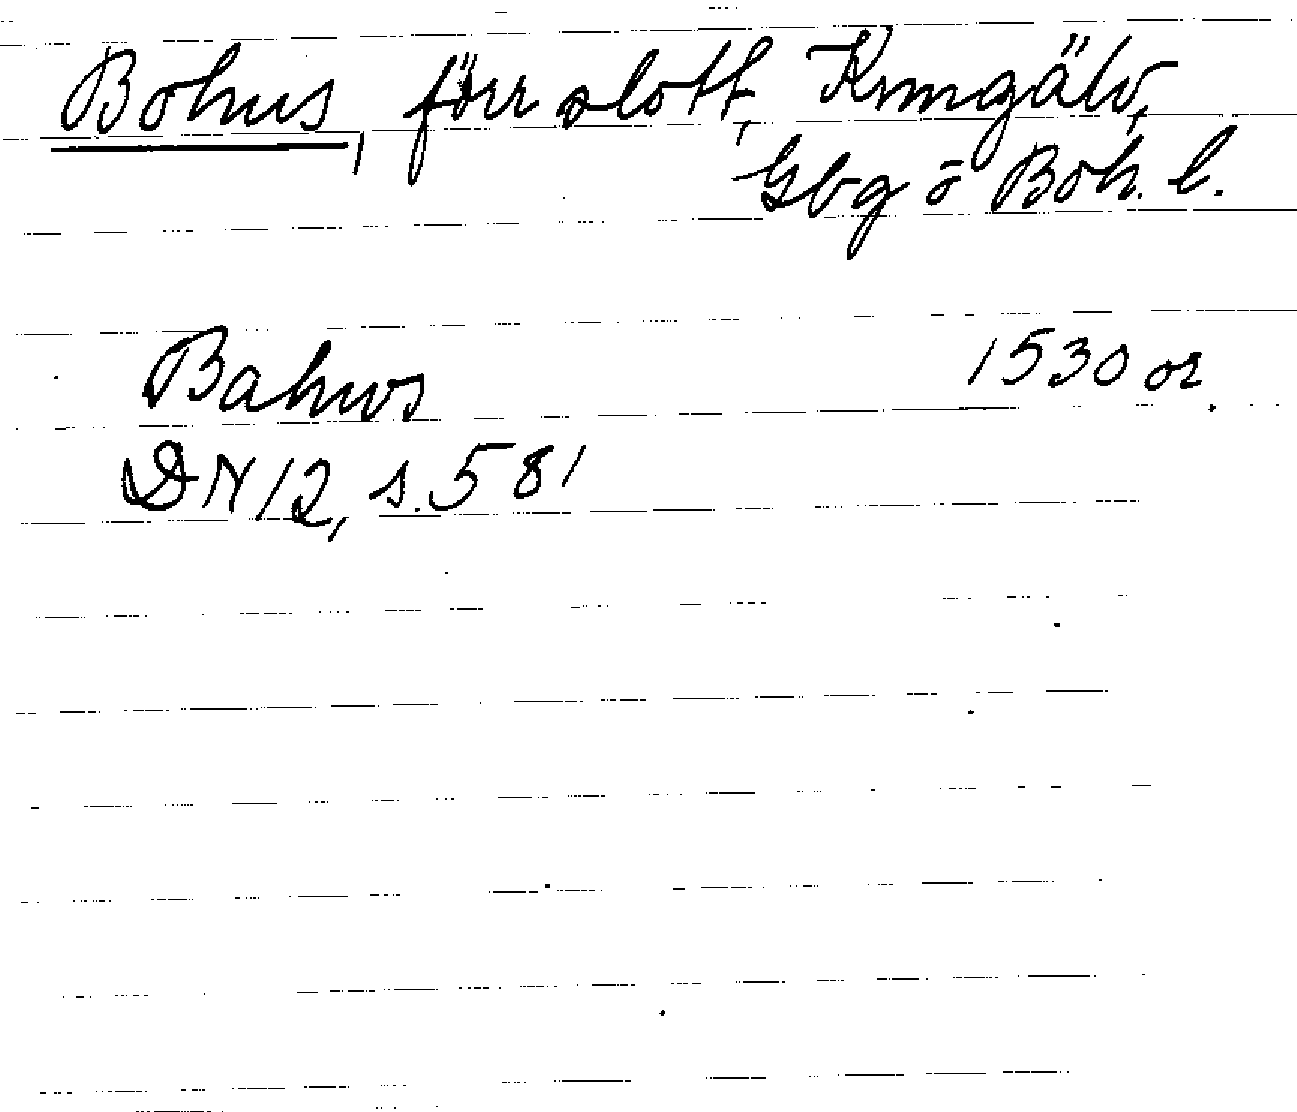 Bohus, förr slott, Kungälv,
Gbg o Boh. l.
Bahus 1530 or.
DN 12, s. 581